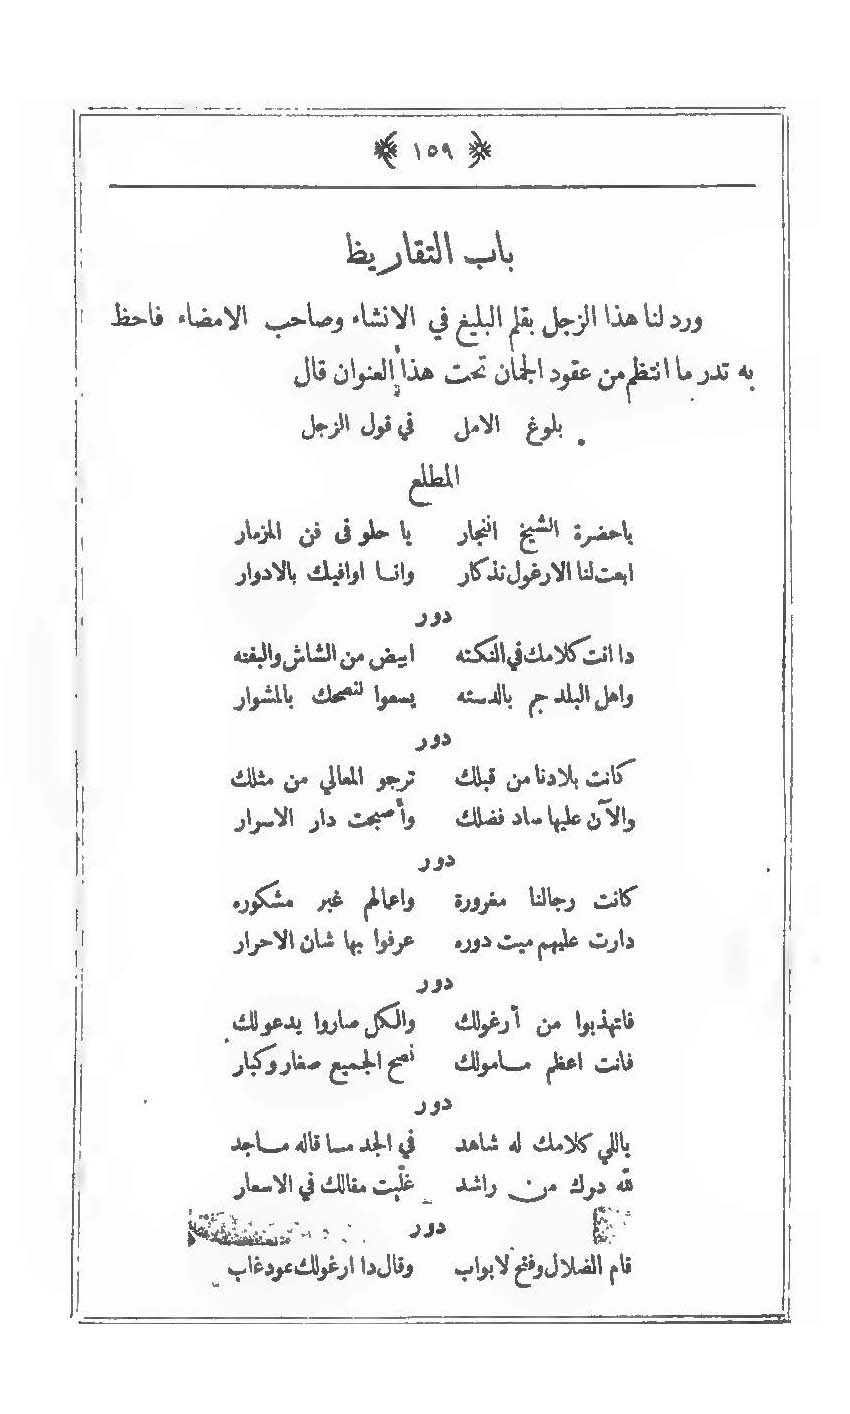 ١٥٩
باب التقاريظ
ورد لنا هذا الزجل بقلم البليغ في الانشاء وصاحب الامضاء فاحظ
به تدر ما انتظم من عقود الجمان تحت هذا العنوان قال
بلوغ الامل في قول الزجل
المطلع
ياحضرة الشيخ النجار يا حلو فى فن المزمار
ابعت لنا الارغول تذكار وانا اوافيك بالادوار
دور
دا انت كلامك في النكته ابيض من الشاش والبفته
واهل البلد جم بالدسته يسعوا لنصحك بالمشوار
دور
كانت بلادنا من قبلك ترجو المعالي من مثلك
والآن عليها ساد فضلك وأصبحت دار الاسرار
دور
كانت رجالنا مغرورة واعمالهم غير مشكوره
دارت عليهم ميت دوره عرفوا بها شان الاحرار
دور
فاتهذبوا من أرغولك والكل صاروا يدعولك
فانت اعظم مامولك نصح الجميع صغار وكبار
دور
ياللي كلامك له شاهد في الجد ما قاله ماجد
لله درك من راشد غلّبت مقالك في الاسعار
دور
قام الضلال وفتح لابواب وقال دا ارغولك عود غاب